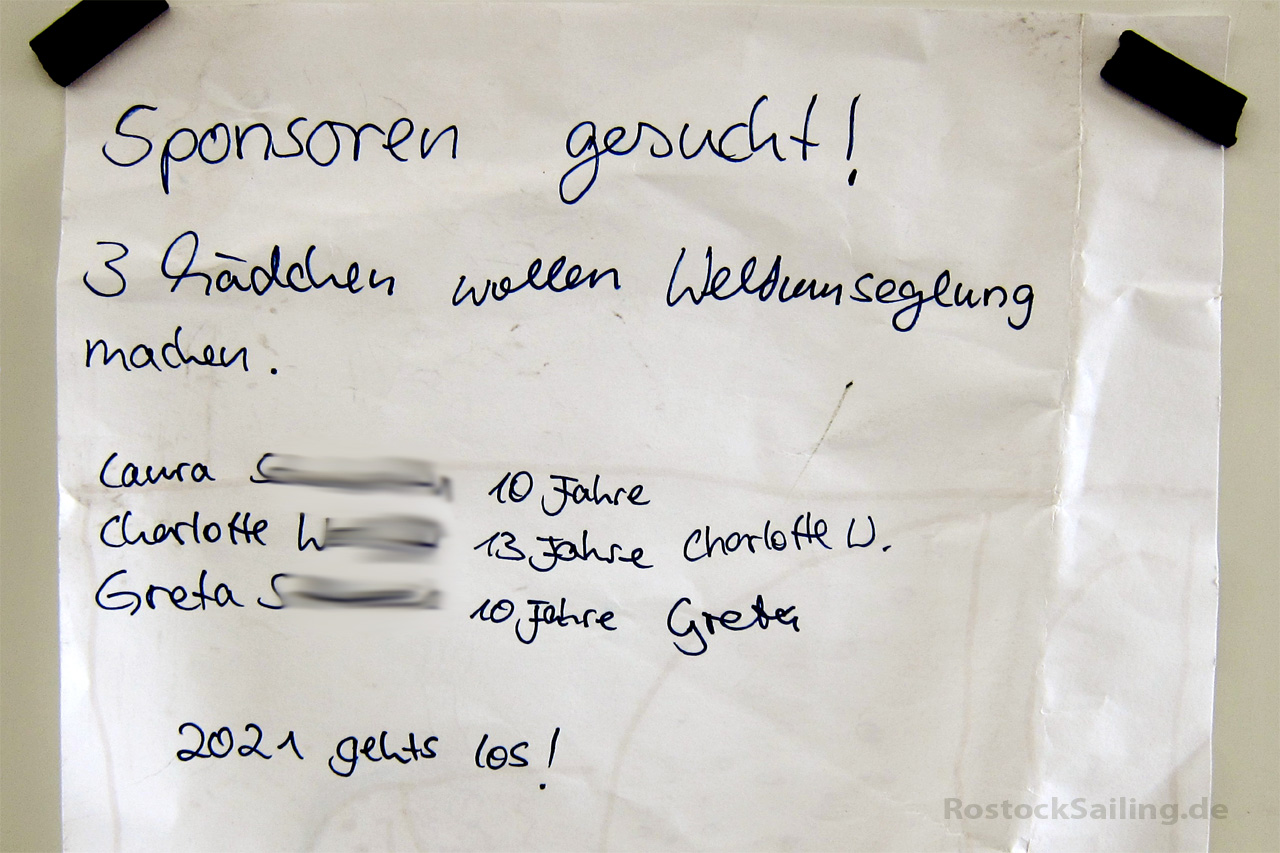 Sponsoren gesucht!
3 Mädchen wollen Weltumseglung
machen.
Laura S 10 Jahre
Charlotte W 13 Jahre Charlotte W.
Greta S 10 Jahre Greta
2021 gehts los!
RostockSailing.de